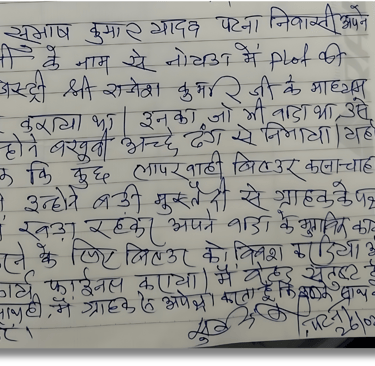 सुभाष कुमार यादव पटना निवासी अपने
के नाम से नोएडा में Plot की
श्री राजेश कुमार जी के माध्यम
कराया था। इनका जो भी वादा था, उसे
बखुबी अच्छे ढंग से निभाया। यहाँ
कि कुछ लापरवाही बिल्डर करना चाह
इन्होंने बड़ी मुस्तैदी से ग्राहक के पक्ष
खड़ा रहकर अपने वादा के मुताबिक कार्य
के लिए बिल्डर को विवश का दिया
कार्य फाईनल कराया। मैं संतुष्ट
मैं ग्राहक से अपेक्षा करता हूँ कि इनके साथ